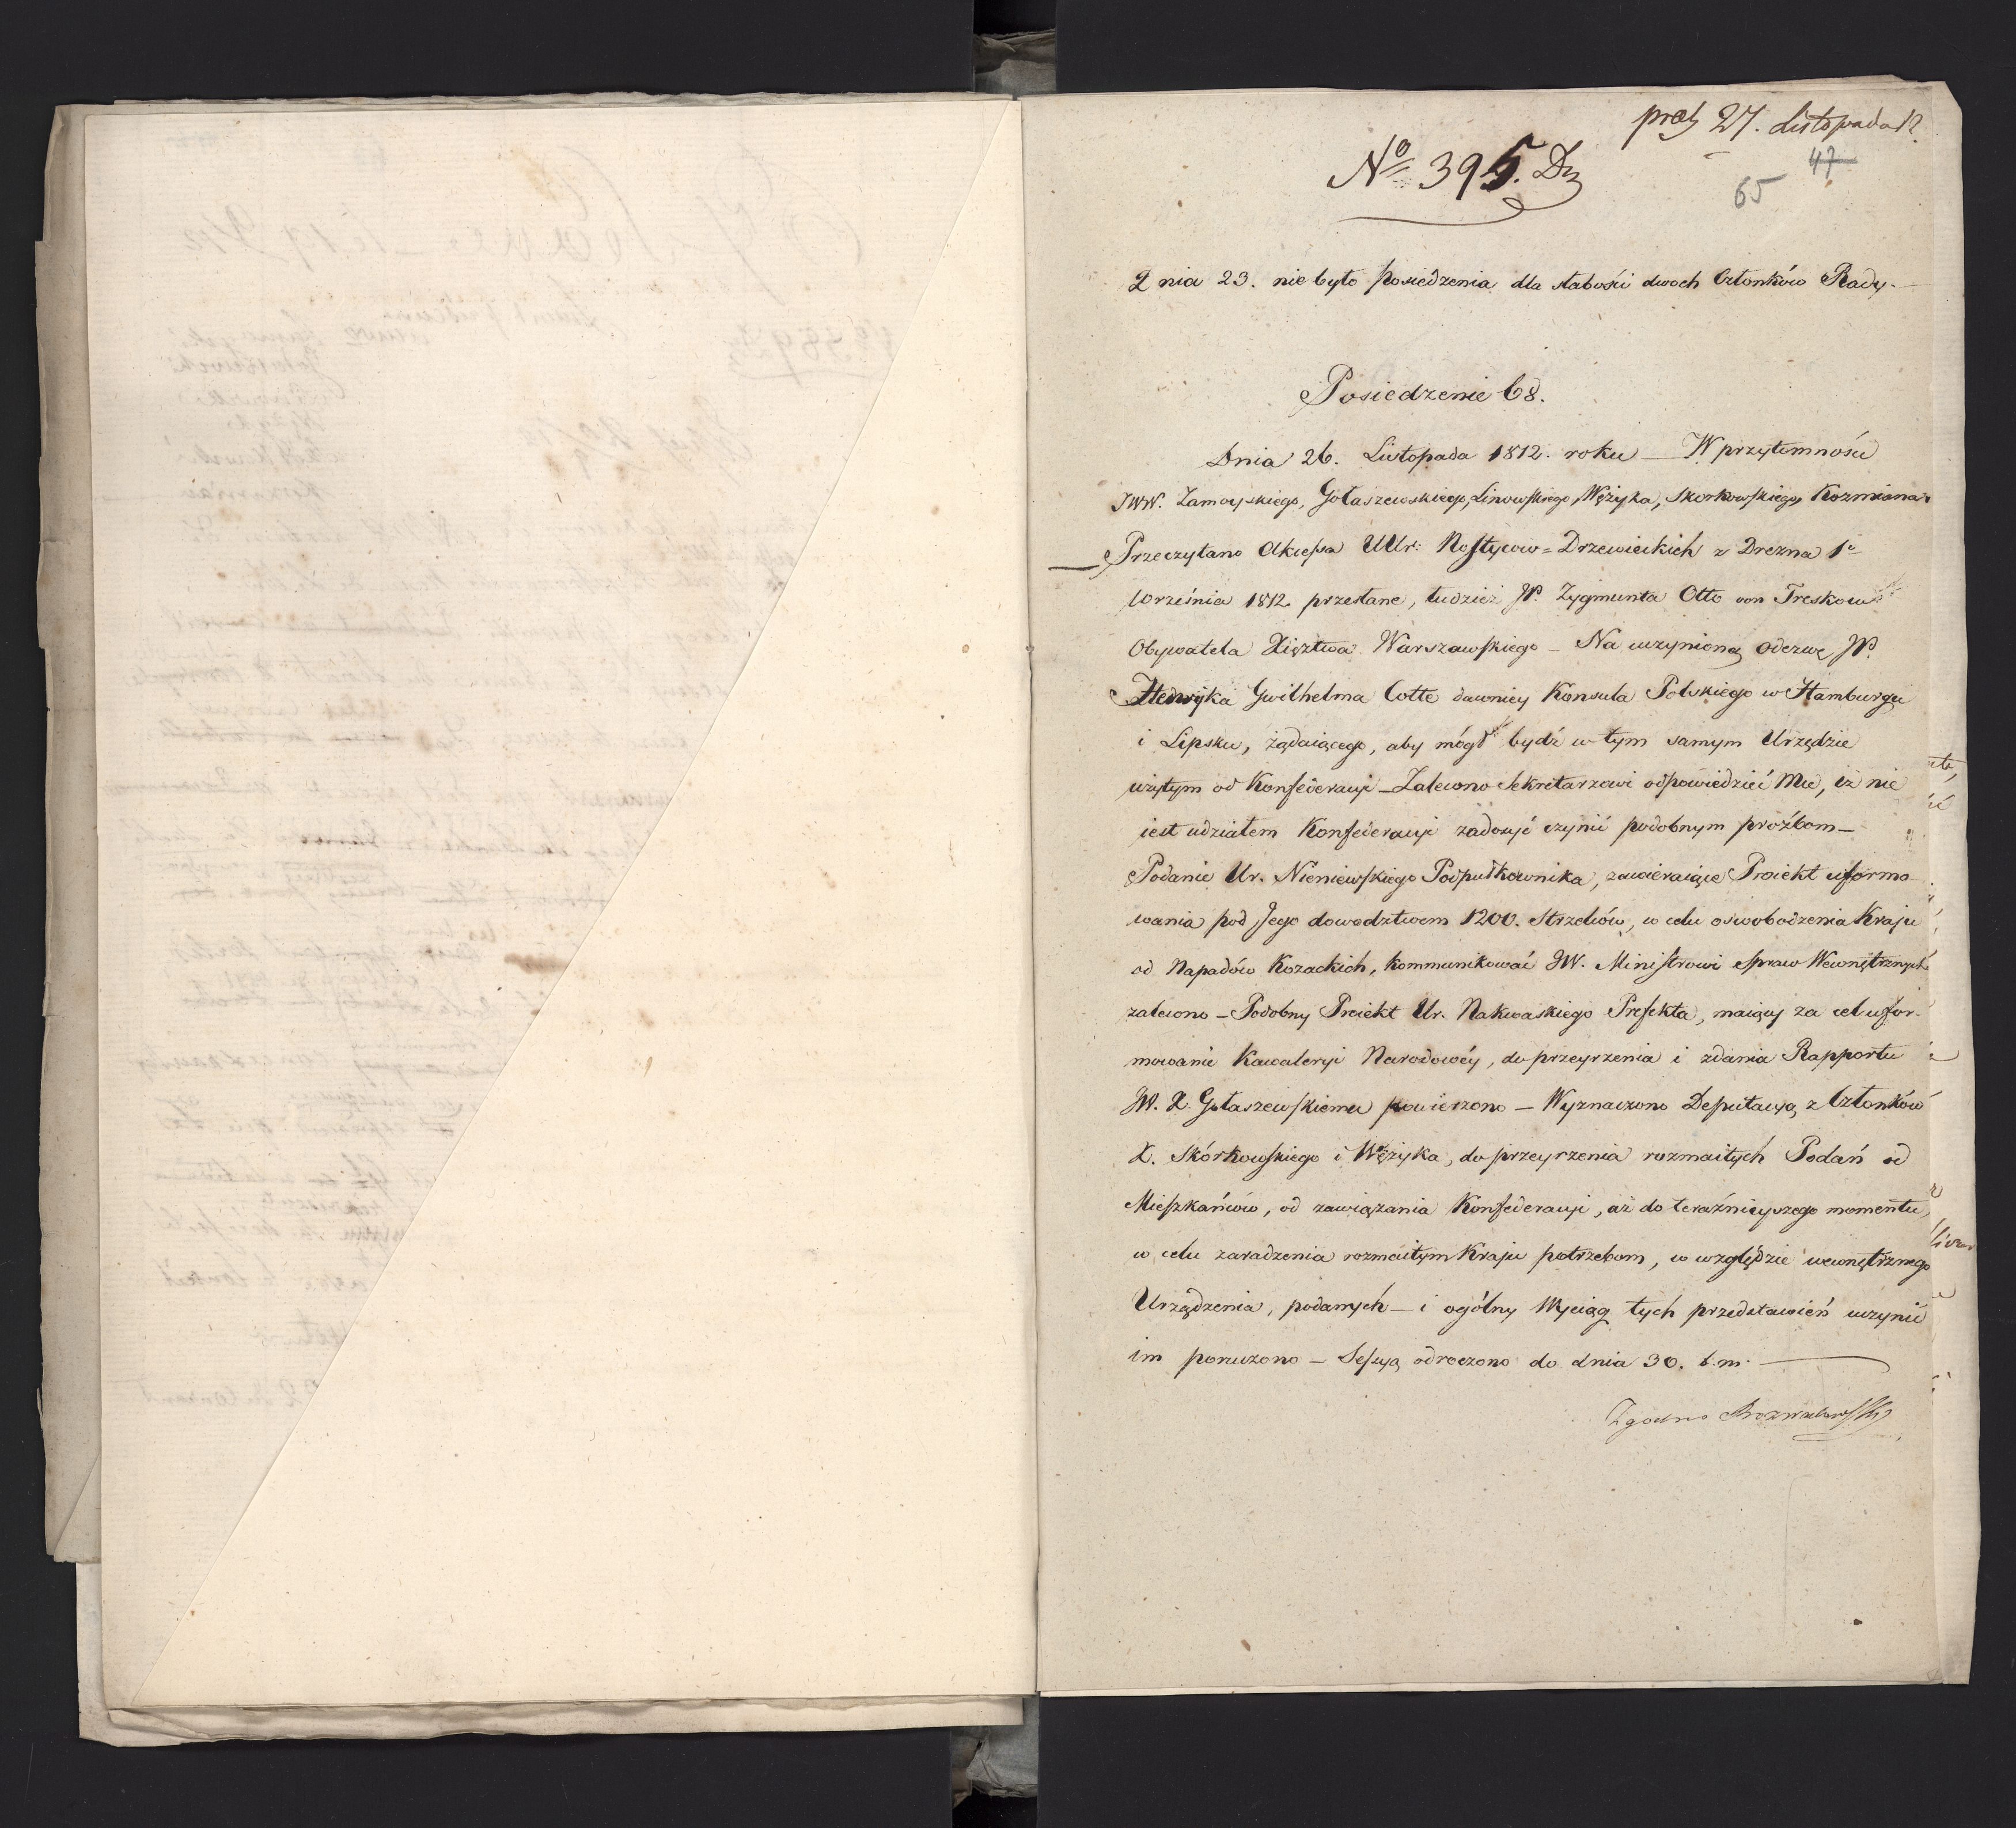 27. Listopada 12
No 395. Dz
47
65
Dnia 23. nie było posiedzenia dla słabości dwoch Członków Rady.
Posiedzenie 68.
Dnia 26. Listopada 1812. roku — W przytomności
JWW. Zamoyskiego, Gołaszewskiego, Linowskiego, Wężyka, Skorkowskiego, Kozmiana
Przeczytano Akcessa UUr: Nostyców = Drzewieckich z Drezna 1o
Września 1812 przesłane, tudzież W. Zygmunta Otto von Treskow
Obywatela Xięztwa Warszawskiego — Na uczynioną odezwę W.
Gwilhelma Cotte dawniey Konsula Polskiego w Hamburgu
i Lipsku, żądaiącego, aby mógł bydź w tym samym Urzędzie
użytym od Konfederacyi — Zalecono Sekretarzowi odpowiedzieć Mu, iż nie
iest udziałem Konfederacyi zadosyć czynić podobnym proźbom —
Podanie Ur. Nieniewskiego Podpułkownika, zawieraiące Proiekt uformo
wania pod Jego dowodztwem 1200. Strzelców, w celu oswobodzenia Kraju
od Napadów Kozackich, kommunikować JW. Ministrowi Spraw Wewnętrznych
zalecono — Podobny Proiekt Ur. Nakwaskiego Prefekta, maiący za cel ufor-
mowanie Kawaleryi Narodowéy, do przeyrzenia i zdania Rapportu
JW. X. Gołaszewskiemu powierzono — Wyznaczono Deputacyą z Członków
X. Skórkowskiego i Wężyka, do przeyrzenia rozmaitych Podań od
Mieszkańców, od zawiązania Konfederacyi, aż do teraźnieyszego momentu,
w celu zaradzenia rozmaitym Kraju potrzebom, w względzie wewnętrznego
Urządzenia, podanych — i ogólny Wyciąg tych przedstawień uczynić
im poruczono — Sessyą odroczono do dnia 30. b. m.
Zgodno